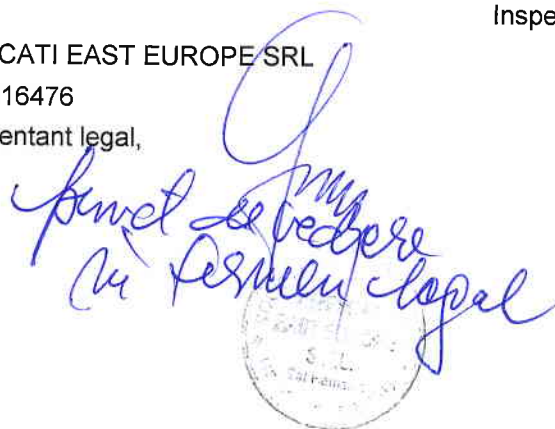 Inspe
CATI EAST EUROPE SRL
16476
entant legal,
punct de vedere
în termen legal
S.R.L.